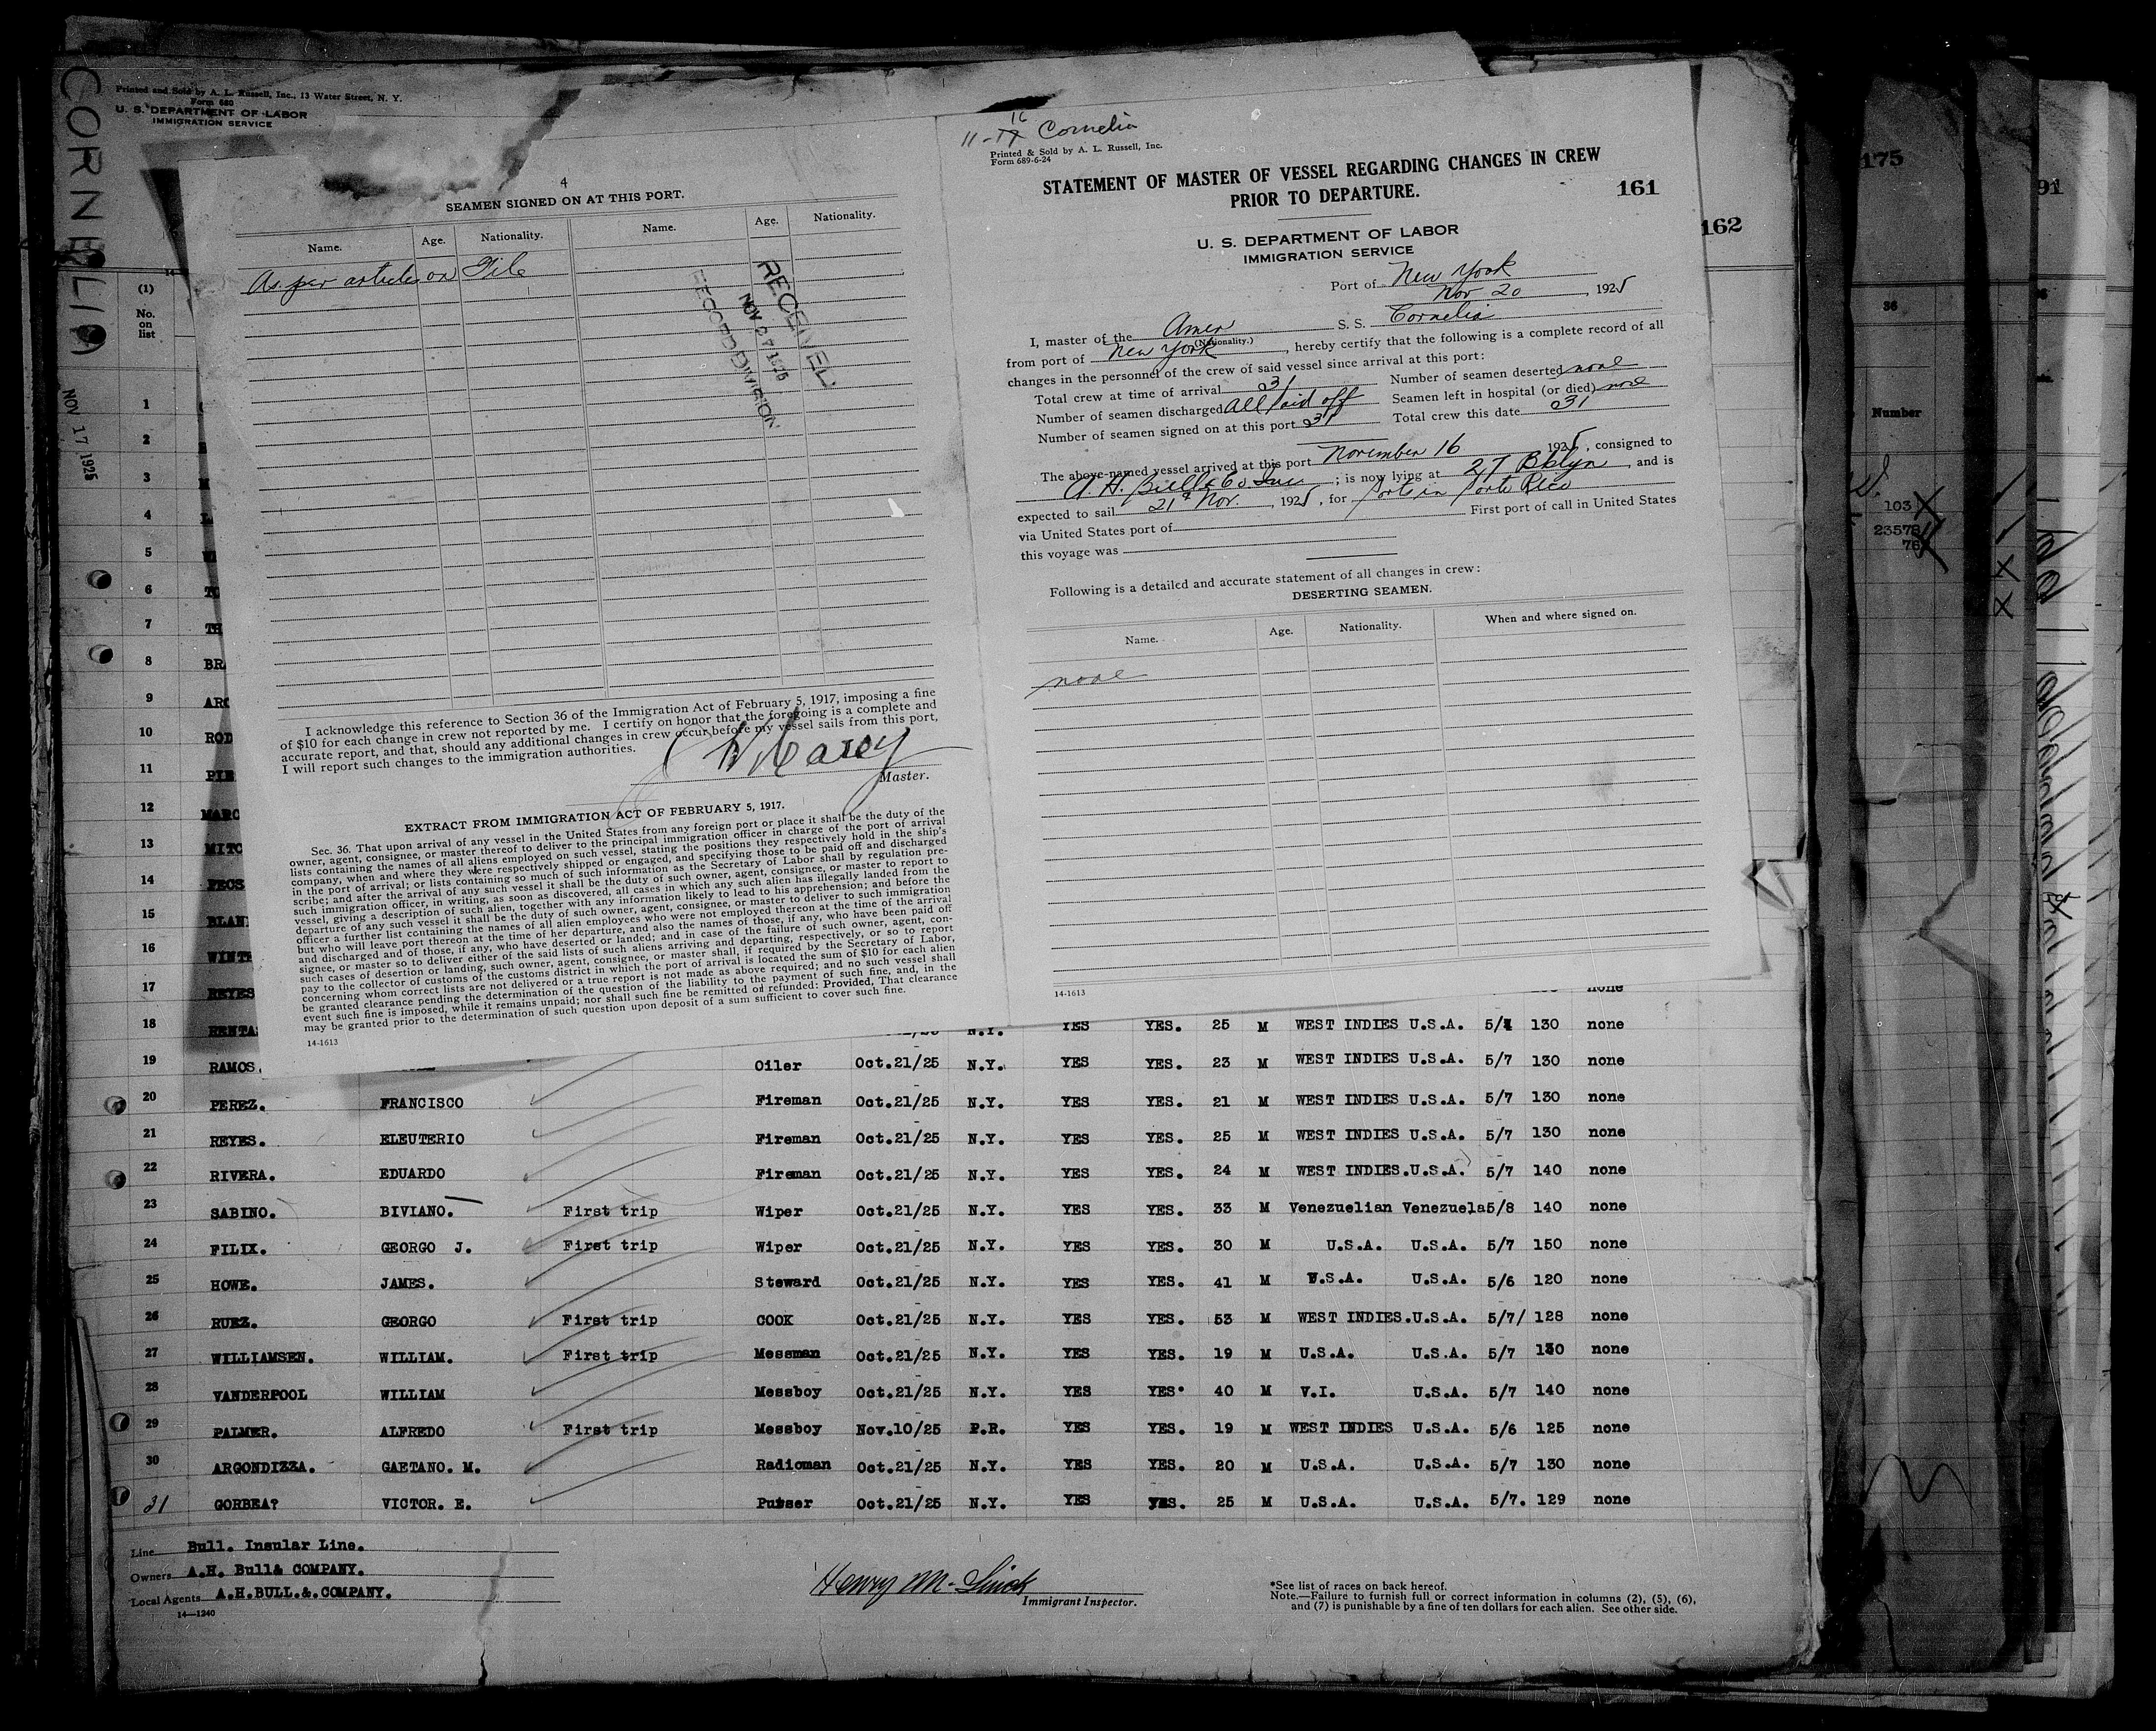 CORNELIA
Printed and Sold by A. L. Russell, Inc., 13 Water Street, N. Y.
Form 680
U. S. DEPARTMENT OF LABOR
IMMIGRATION SERVICE
(1)
No.
on
list
NOV 17 1925
4
SEAMEN SIGNED ON AT THIS PORT.
Name. Age. Nationality. Name. Age. Nationality.
As per articles on File
RECEIVED
NOV 27 1925
RECORD DIVISION
I acknowledge this reference to Section 36 of the Immigration Act of February 5, 1917, imposing a fine
of $10 for each change in crew not reported by me. I certify on honor that the foregoing is a complete and
accurate report, and that, should any additional changes in crew occur before my vessel sails from this port,
I will report such changes to the immigration authorities.
Master.
EXTRACT FROM IMMIGRATION ACT OF FEBRUARY 5, 1917.
Sec. 36. That upon arrival of any vessel in the United States from any foreign port or place it shall be the duty of the
owner, agent, consignee, or master thereof to deliver to the principal immigration officer in charge of the port of arrival
lists containing the names of all aliens employed on such vessel, stating the positions they respectively hold in the ship's
company, when and where they were respectively shipped or engaged, and specifying those to be paid off and discharged
in the port of arrival; or lists containing so much of such information as the Secretary of Labor shall by regulation pre-
scribe; and after the arrival of any such vessel it shall be the duty of such owner, agent, consignee, or master to report to
such immigration officer, in writing, as soon as discovered, all cases in which any such alien has illegally landed from the
vessel, giving a description of such alien, together with any information likely to lead to his apprehension; and before the
departure of any such vessel it shall be the duty of such owner, agent, consignee, or master to deliver to such immigration
officer a further list containing the names of all alien employees who were not employed thereon at the time of the arrival
but who will leave port thereon at the time of her departure, and also the names of those, if any, who have been paid off
and discharged and of those, if any, who have deserted or landed; and in case of the failure of such owner, agent, con-
signee, or master so to deliver either of the said lists of such aliens arriving and departing, respectively, or so to report
such cases of desertion or landing, such owner, agent, consignee, or master shall, if required by the Secretary of Labor,
pay to the collector of customs of the customs district in which the port of arrival is located the sum of $10 for each alien
concerning whom correct lists are not delivered or a true report is not made as above required; and no such vessel shall
be granted clearance pending the determination of the question of the liability to the payment of such fine, and, in the
event such fine is imposed, while it remains unpaid; nor shall such fine be remitted or refunded: Provided, That clearance
may be granted prior to the determination of such question upon deposit of a sum sufficient to cover such fine.
14-1613
16
11-17 Cornelia
Printed & Sold by A. L. Russell, Inc.
Form 689-6-24
STATEMENT OF MASTER OF VESSEL REGARDING CHANGES IN CREW
PRIOR TO DEPARTURE.
161
U. S. DEPARTMENT OF LABOR
IMMIGRATION SERVICE
Port of New York
Nov 20, 1925
I, master of the Amer S. S. Cornelia
(Nationality.)
from port of New York, hereby certify that the following is a complete record of all
changes in the personnel of the crew of said vessel since arrival at this port:
Total crew at time of arrival 31 Number of seamen deserted none
Number of seamen discharged All Paid off Seamen left in hospital (or died) none
Number of seamen signed on at this port 31 Total crew this date 31
The above-named vessel arrived at this port November 16 1925, consigned to
A. H. Bull & Co. Inc; is now lying at 27 Bklyn, and is
expected to sail 21st Nov., 1925, for Ports in Porto Rico
via United States port of First port of call in United States
this voyage was
Following is a detailed and accurate statement of all changes in crew:
DESERTING SEAMEN.
Name. Age. Nationality. When and where signed on.
none
14-1613
162
175
36
Number
103
23578
76
91
1
2
3
4
5
6
7 TH
8 BRA
9 ARG
10 ROD
11 PIE
12 MARC
13 MITC
14 PECS
15 BLAN
16 WINT
17 REYES none
18 RENTA N.Y. YES YES. 25 M WEST INDIES U.S.A. 5/ 130 none
19 RAMOS. Oiler Oct.21/25 N.Y. YES YES. 23 M WEST INDIES U.S.A. 5/7 130 none
20 PEREZ. FRANCISCO Fireman Oct.21/25 N.Y. YES YES. 21 M WEST INDIES U.S.A. 5/7 130 none
21 REYES. ELEUTERIO Fireman Oct.21/25 N.Y. YES YES. 25 M WEST INDIES U.S.A. 5/7 130 none
22 RIVERA. EDUARDO Fireman Oct.21/25 N.Y. YES YES. 24 M WEST INDIES.U.S.A. 5/7 140 none
23 SABINO. BIVIANO. First trip Wiper Oct.21/25 N.Y. YES YES. 33 M Venezuelian Venezuela5/8 140 none
24 FILIX. GEORGO J. First trip Wiper Oct.21/25 N.Y. YES YES. 30 M U.S.A. U.S.A. 5/7 150 none
25 HOWE. JAMES. Steward Oct.21/25 N.Y. YES YES. 41 M U.S.A. U.S.A. 5/6 120 none
26 RUEZ. GEORGO First trip COOK Oct.21/25 N.Y. YES YES. 53 M WEST INDIES.U.S.A. 5/7/ 128 none
27 WILLIAMSEN. WILLIAM. First trip Messman Oct.21/25 N.Y. YES YES. 19 M U.S.A. U.S.A. 5/7 130 none
28 VANDERPOOL WILLIAM Messboy Oct.21/25 N.Y. YES YES. 40 M V.I. U.S.A. 5/7 140 none
29 PALMER. ALFREDO First trip Messboy Nov.10/25 P.R. YES YES. 19 M WEST INDIES U.S.A. 5/6 125 none
30 ARGONDIZZA. GAETANO. M. Radioman Oct.21/25 N.Y. YES YES. 20 M U.S.A. U.S.A. 5/7 130 none
31 GORBEA? VICTOR. E. Purser Oct.21/25 N.Y. YES YES. 25 M U.S.A. U.S.A. 5/7. 129 none
Line Bull. Insular Line.
Owners A.H. Bull& COMPANY.
Local Agents A.H.BULL.&.COMPANY.
14-1240
Henry M.
Immigrant Inspector.
*See list of races on back hereof.
Note.—Failure to furnish full or correct information in columns (2), (5), (6),
and (7) is punishable by a fine of ten dollars for each alien. See other side.